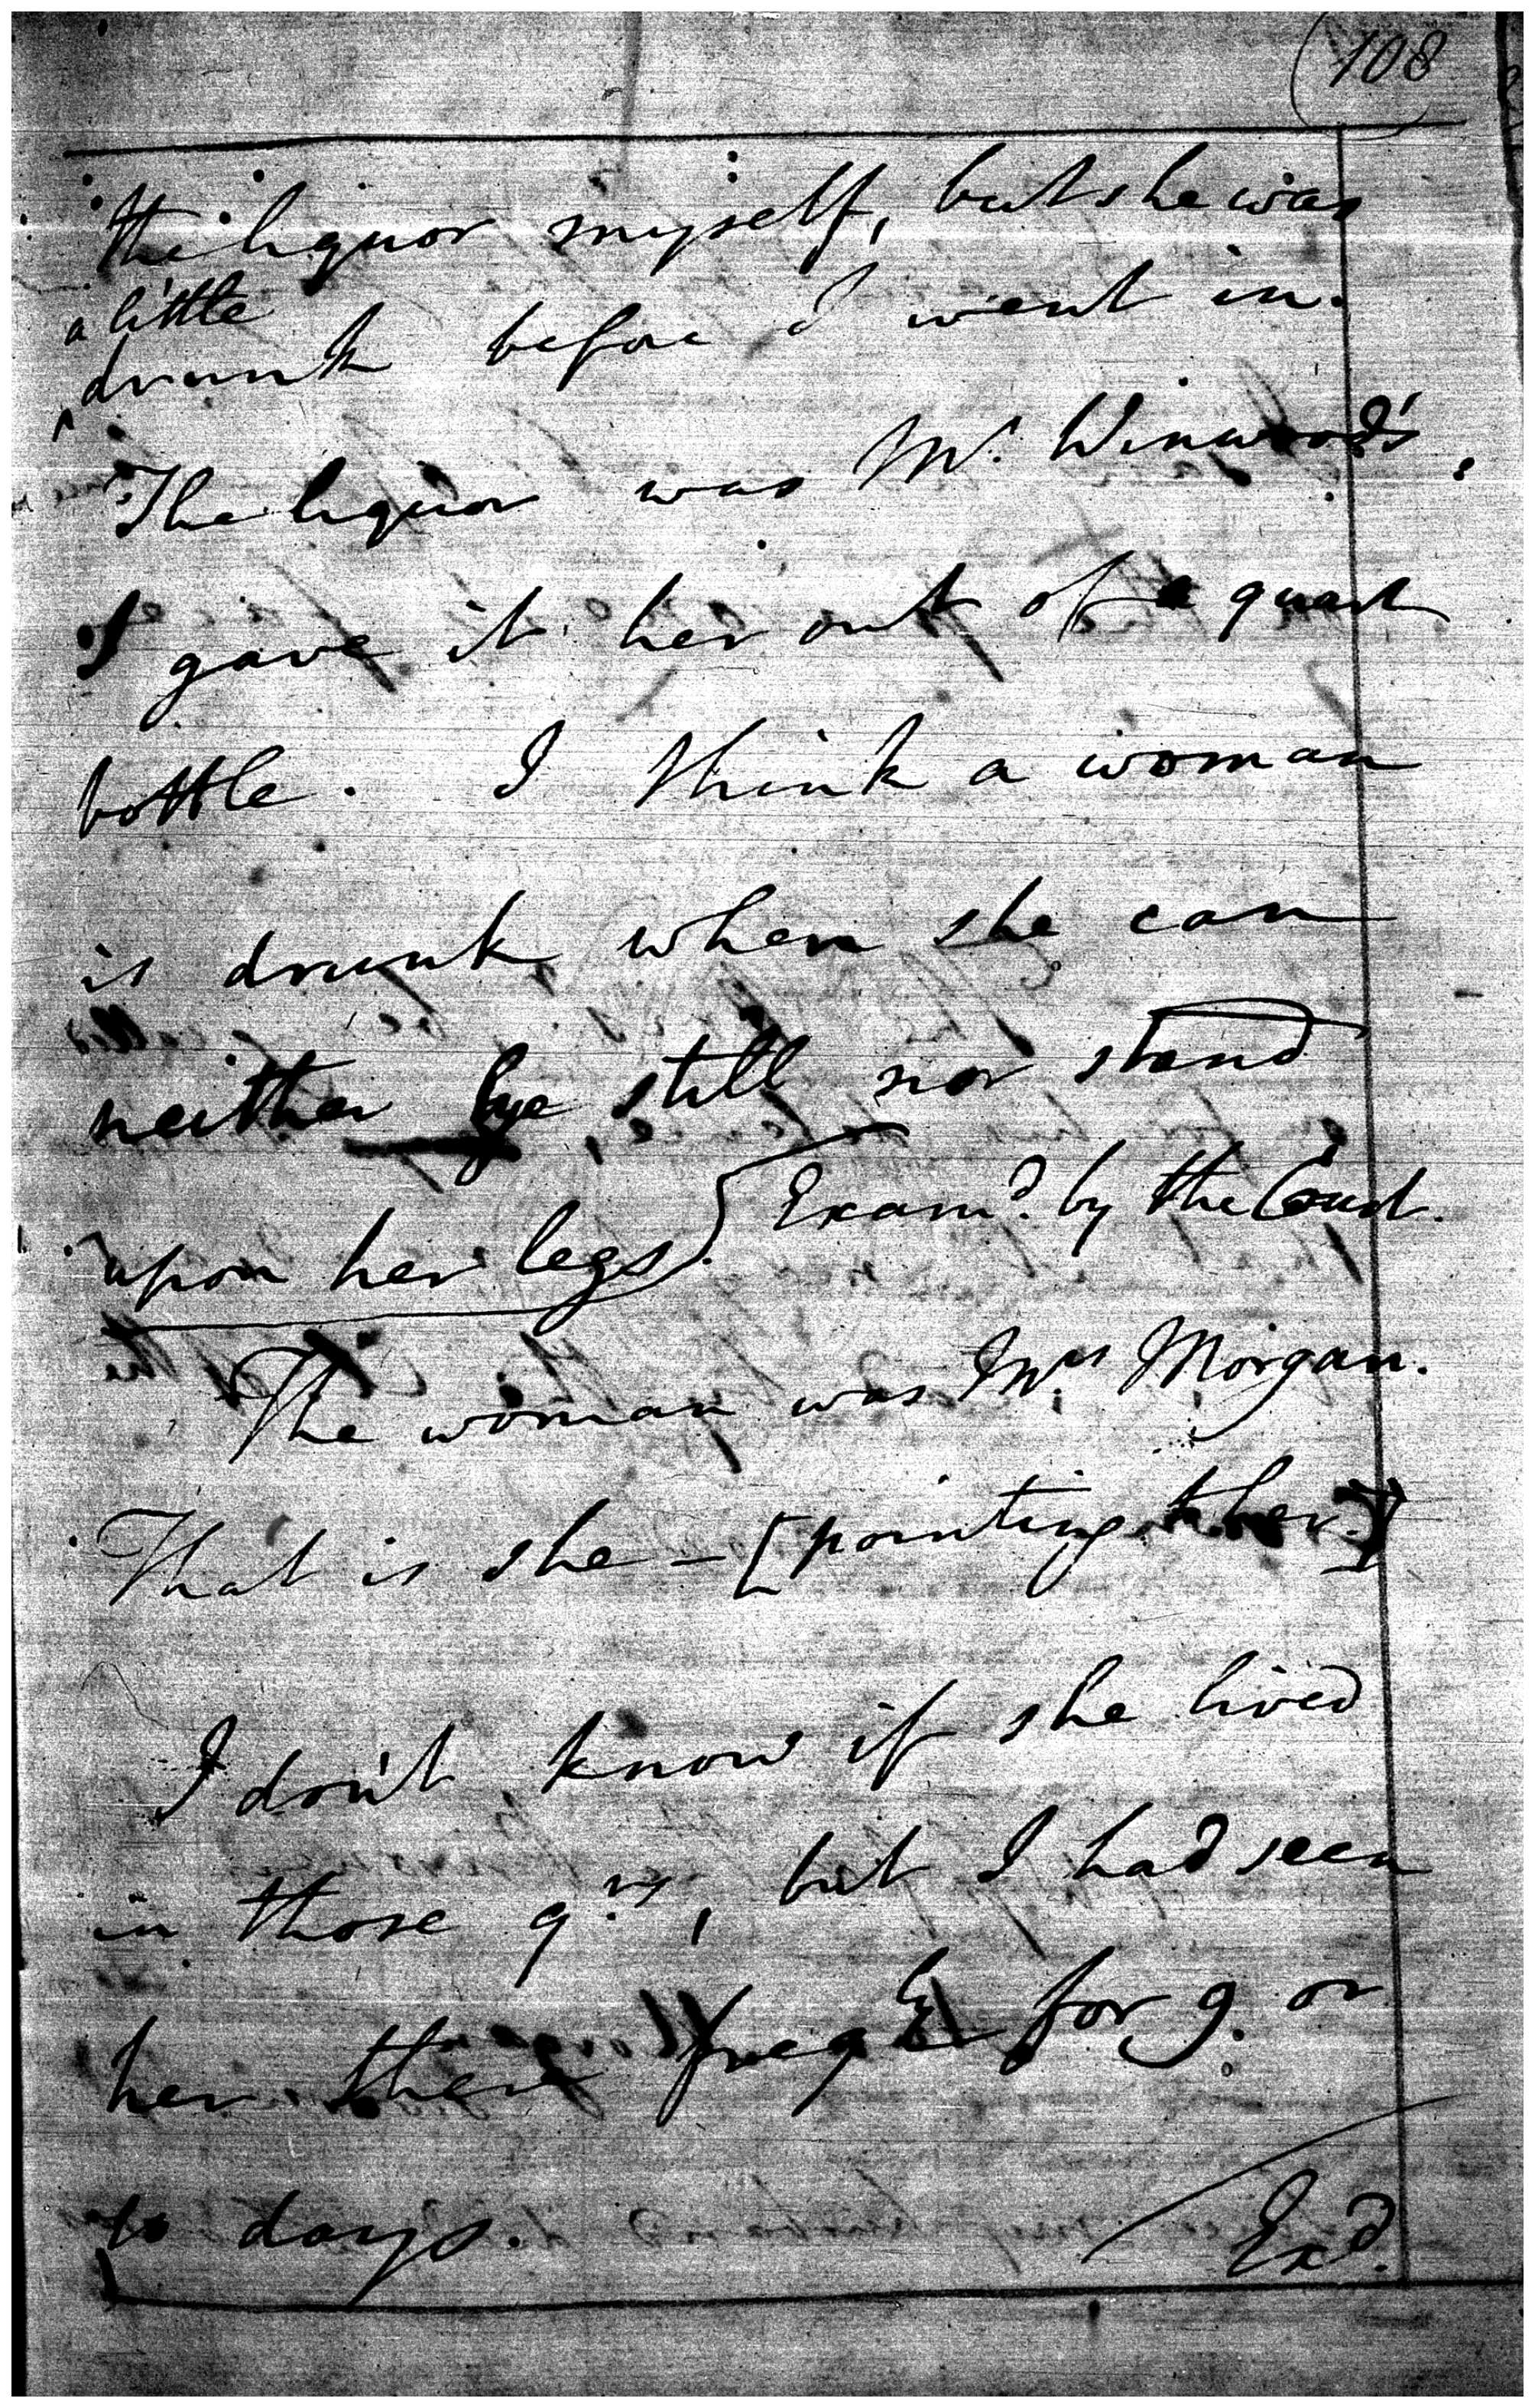 108
the liquor myself, but she was
a little
drunk before I went in.
The liquor was Mr. Winwood's.
I gave it her out of a quart
bottle. I think a woman
is drunk when she can
neither lye still nor stand
upon her legs.
Examd. by the Court.
The woman was Mrs Morgan.
That is she - [pointing to her.]
I don't know if she lived
in those qrs, but I had seen
her there for 9. or
10 days.
Exd.